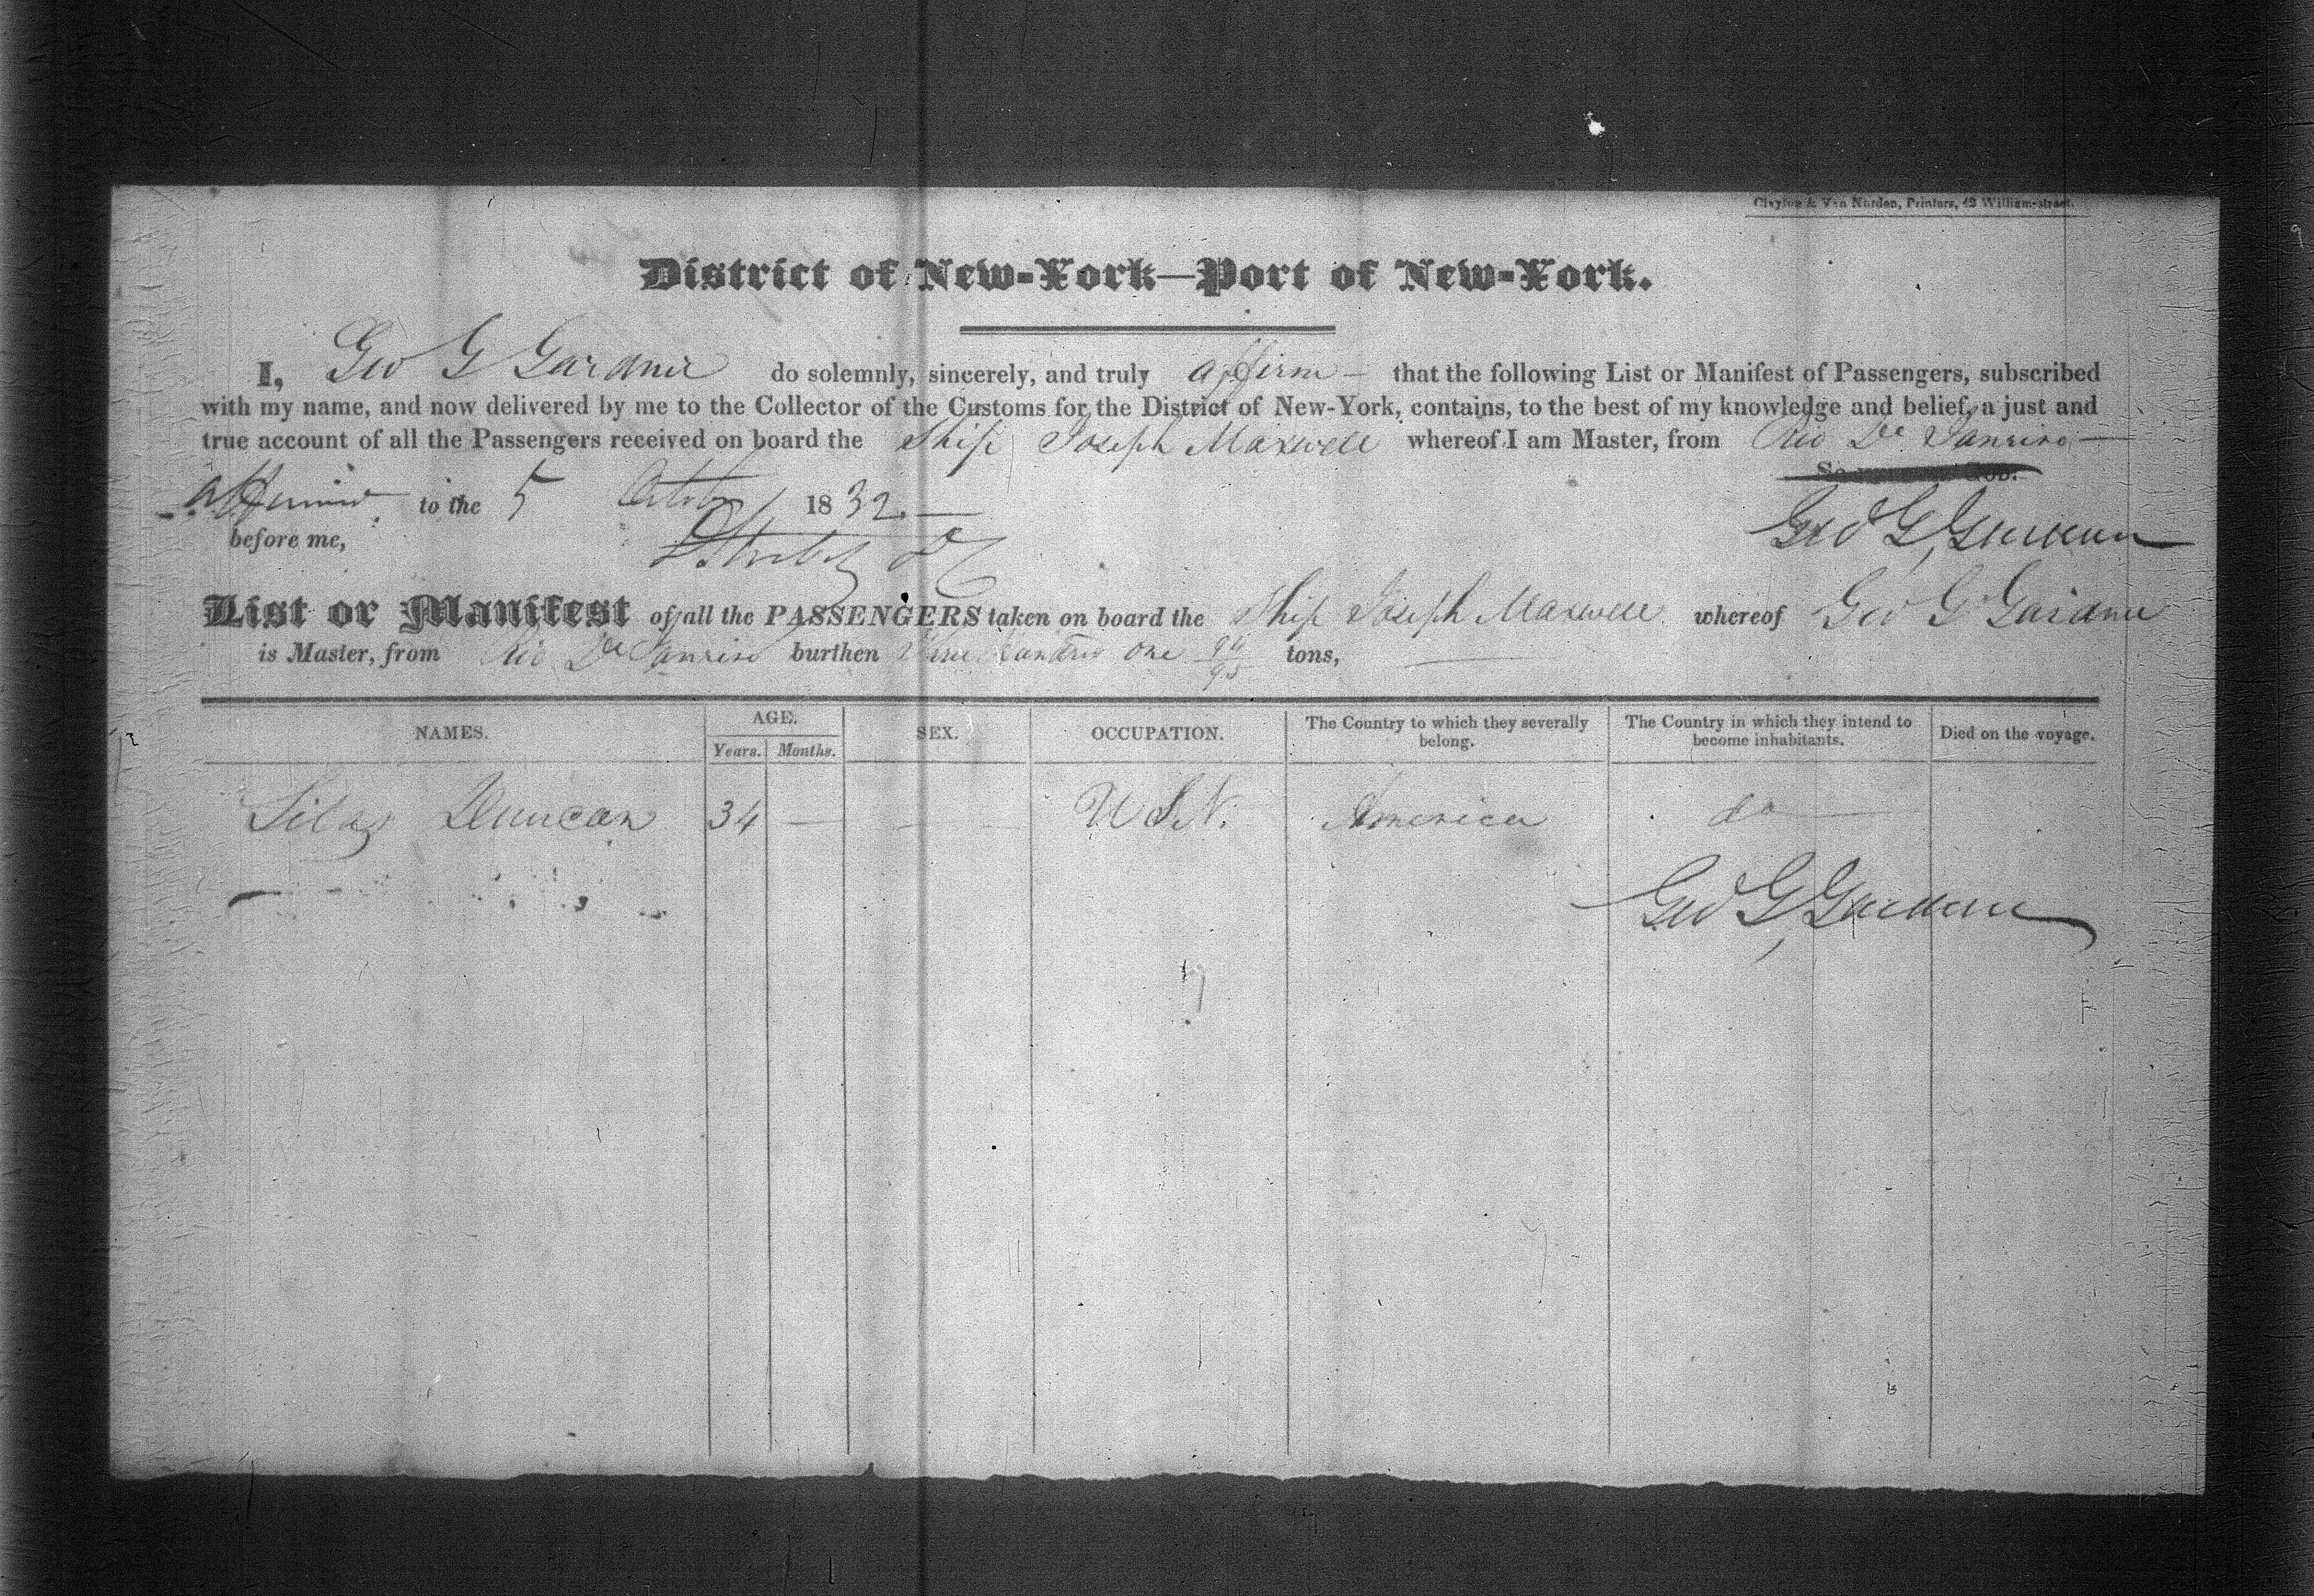 Clayton & Van Norden, Printers, 42 William-street.
District of New-York—Port of New-York.
I, Geo G Gardner do solemnly, sincerely, and truly affirm — that the following List or Manifest of Passengers, subscribed
with my name, and now delivered by me to the Collector of the Customs for the District of New-York, contains, to the best of my knowledge and belief, a just and
true account of all the Passengers received on board the Ship Joseph Maxwell whereof I am Master, from Rio De Janeiro —
So God.
affirmed to the 5 October 1832. —
Geo G Gardner
before me,
List or Manifest of all the PASSENGERS taken on board the Ship Joseph Maxwell whereof Geo G Gardner
is Master, from Rio De Janeiro burthen hundred one 94/95 tons,
NAMES. AGE. SEX. OCCUPATION. The Country to which they severally belong. The Country in which they intend to become inhabitants. Died on the voyage.
Years. Months.
Silas Duncan 34 — — U S N. America do —
Geo G Gardner